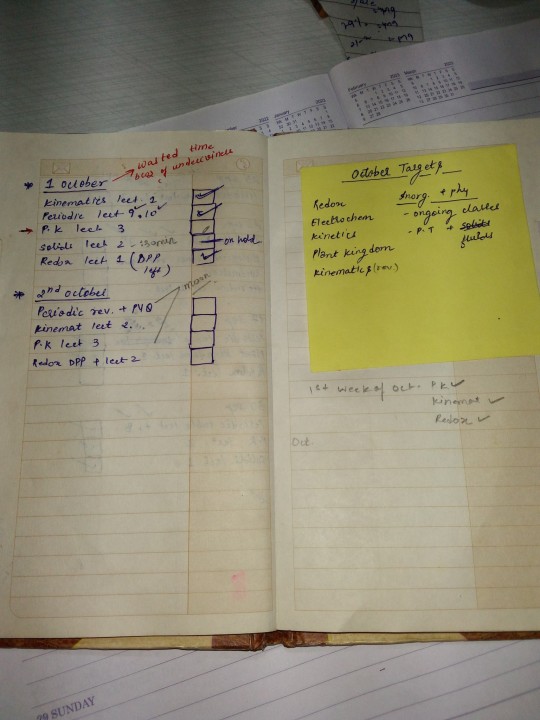 wasted time
bcoz of
* 1 october
Kinematics lect 1
Periodic lect 9, 10
P.K lect 3
Solids lect 2
on hold
Redox lect 1 (DPP
left)
* 2nd october
Periodic rev. + PYQ
Kinemat lect 2.
P.K lect 3
Redox DPP + lect 2
October Targets
Redox
Electrochem
Kinetics
Plant kingdom
Kinematics (rev.)
Inorg. + phy
- ongoing
- P.T + solids
fluids
1st week of Oct. PK ✓
Kinemat ✓
Redox ✓
Oct.
29 SUNDAY
January
February
March
2023